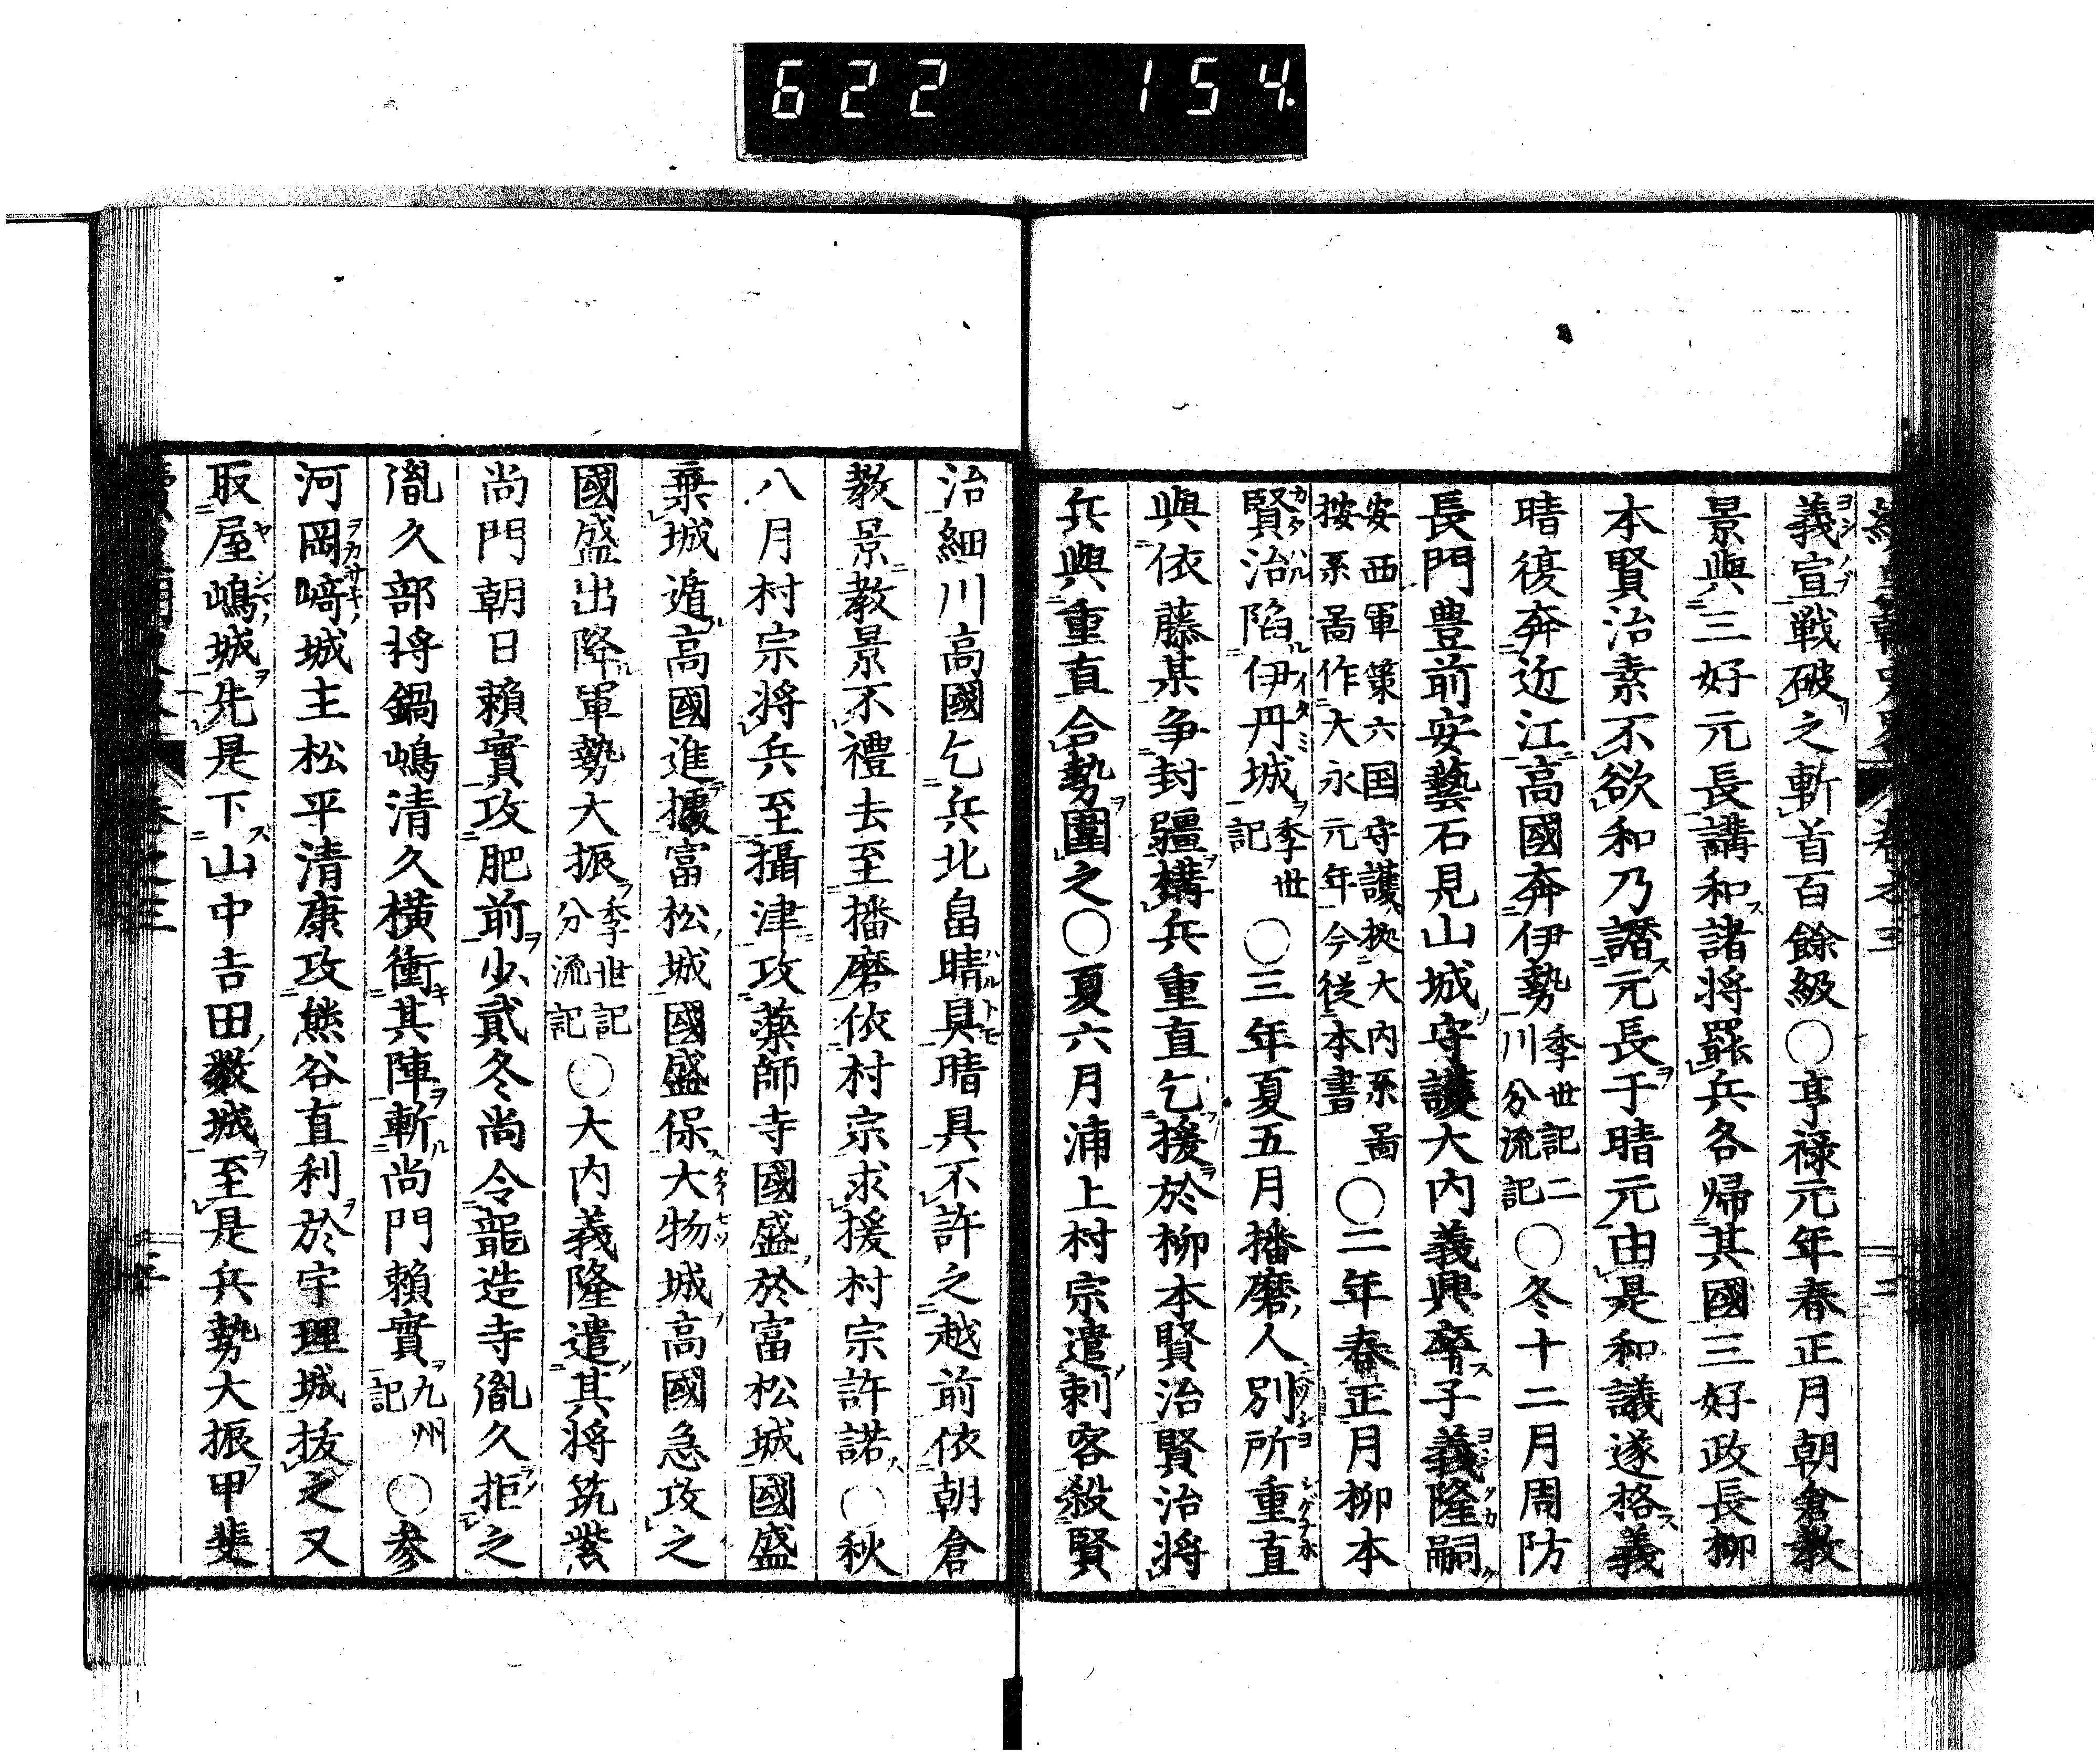 622 154.
義宣戦破之斬首百餘級○享禄元年春正月朝倉教
景與三好元長講和諸将罷兵各帰其國三好政長柳
本賢治素不欲和乃譖元長于晴元由是和議遂格義
晴復奔近江高國奔伊勢季世記二川分流記○冬十二月周防
長門豊前安藝石見山城守護大内義興卒子義隆嗣
安西軍策六国守護拠大内系啚
按系啚作大永元年今従本書
○二年春正月柳本
賢治陥伊丹城季世記○三年夏五月播磨人別所重直
與依藤某争封疆構兵重直乞援於柳本賢治賢治将
兵與重直合勢圍之○夏六月浦上村宗遣刺客殺賢
治細川高國乞兵北畠晴具晴具不許之越前依朝倉
教景教景不禮去至播磨依村宗求援村宗許諾○秋
八月村宗将兵至攝津攻藥師寺國盛於富松城國盛
棄城遁高國進據富松城國盛保大物城高國急攻之
國盛出降軍勢大振季世記分流記○大内義隆遣其将筑紫
尚門朝日頼實攻肥前少貳冬尚令龍造寺胤久拒之
胤久部将鍋嶋清久横衝其陣斬尚門頼實九州記○参
河岡﨑城主松平清康攻熊谷直利於宇理城抜之又
取屋嶋城先是下山中吉田數城至是兵勢大振甲斐